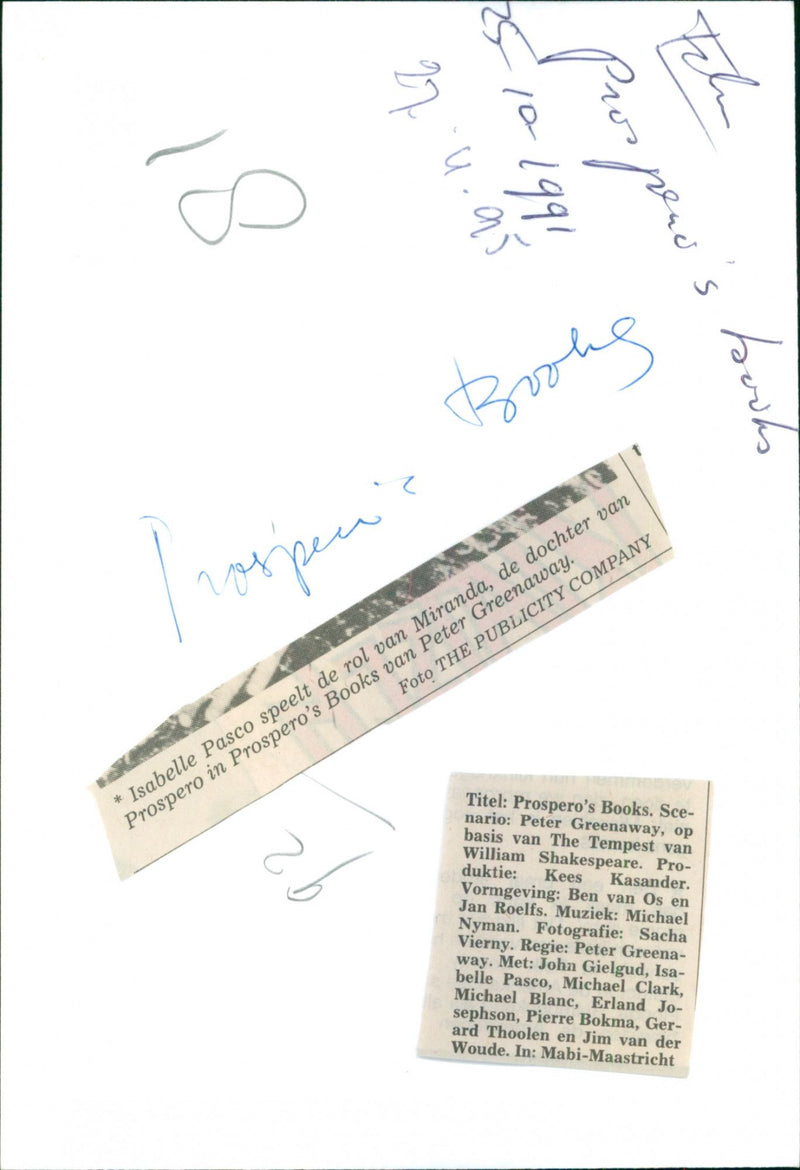 Film
Prospero's books
25-10-1991
27.11.95
18
Prospero's Books
* Isabelle Pasco speelt de rol van Miranda, de dochter van
Prospero in Prospero's Books van Peter Greenaway.
Foto THE PUBLICITY COMPANY
Titel: Prospero's Books. Sce-
nario: Peter Greenaway, op
basis van The Tempest van
William Shakespeare. Pro-
duktie: Kees Kasander.
Vormgeving: Ben van Os en
Jan Roelfs. Muziek: Michael
Nyman. Fotografie: Sacha
Vierny. Regie: Peter Greena-
way. Met: John Gielgud, Isa-
belle Pasco, Michael Clark,
Michael Blanc, Erland Jo-
sephson, Pierre Bokma, Ger-
ard Thoolen en Jim van der
Woude. In: Mabi-Maastricht